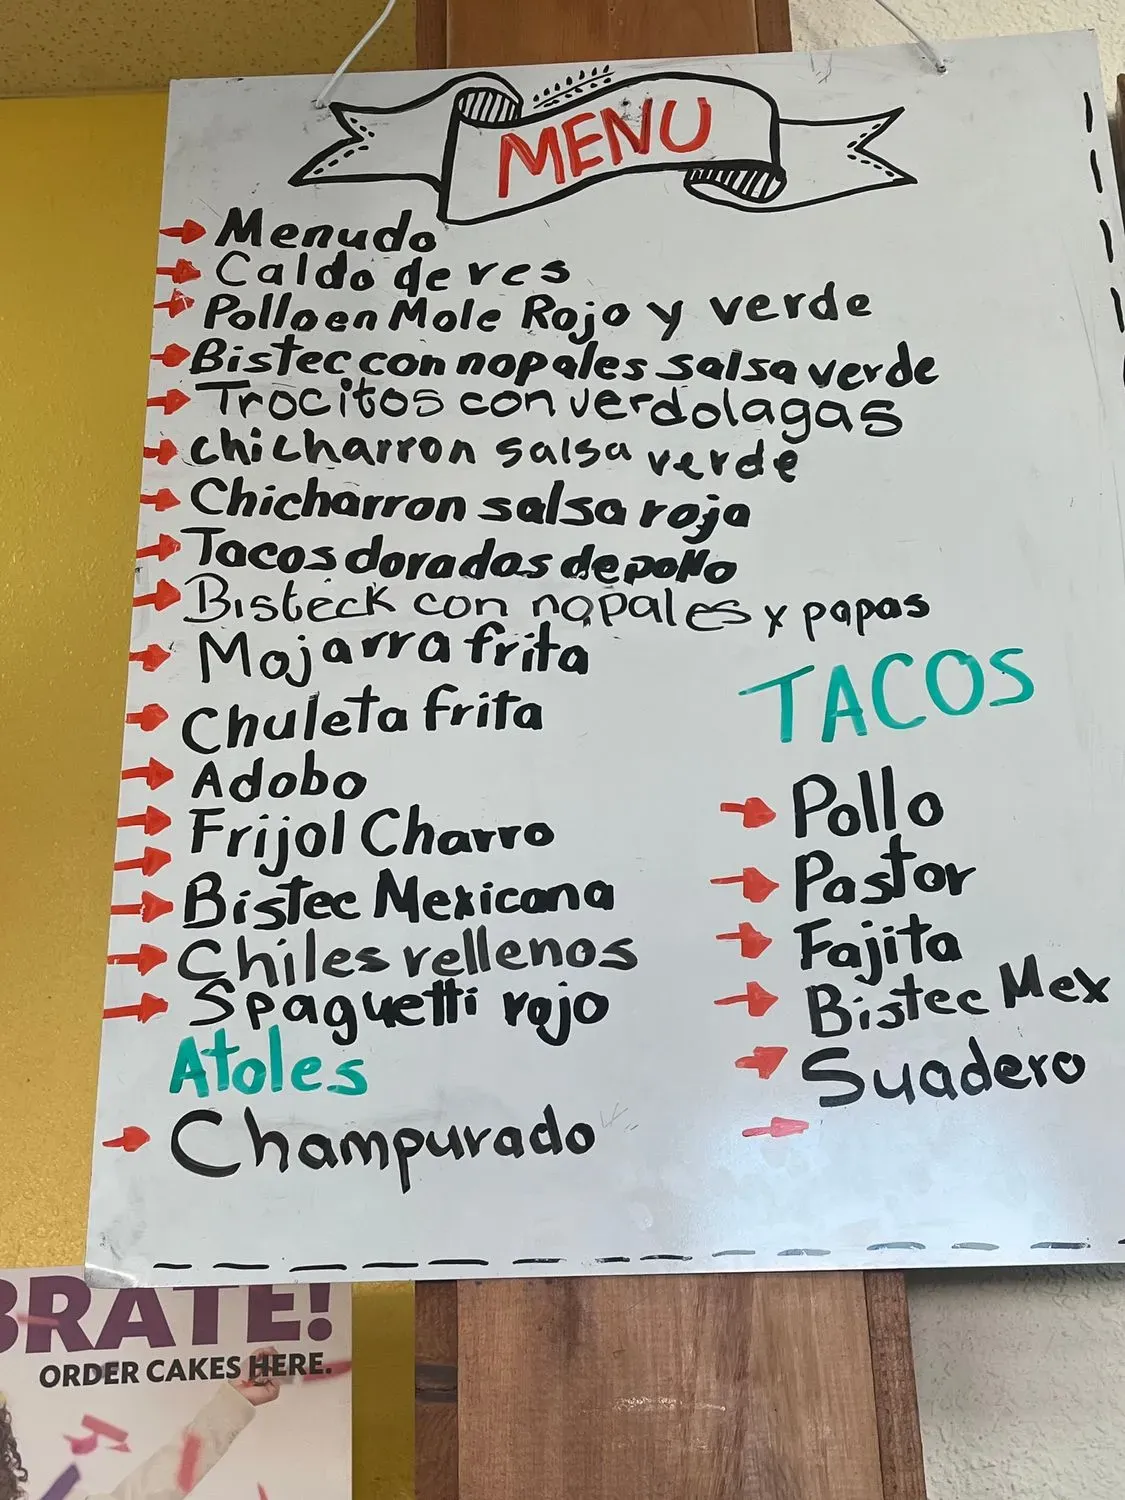 MENU
Menudo
Caldo de res
Pollo en Mole Rojo y verde
Bistec con nopales salsa verde
Trocitos con verdolagas
chicharron salsa verde
Chicharron salsa roja
Tacos dorados de pollo
Bisteck con nopales y papas
Mojarra frita
Chuleta frita
Adobo
Frijol Charro
Bistec Mexicana
Chiles rellenos
Spaguetti rojo
Atoles
Champurado
TACOS
Pollo
Pastor
Fajita
Bistec Mex
Suadero
BRATE!
ORDER CAKES HERE.